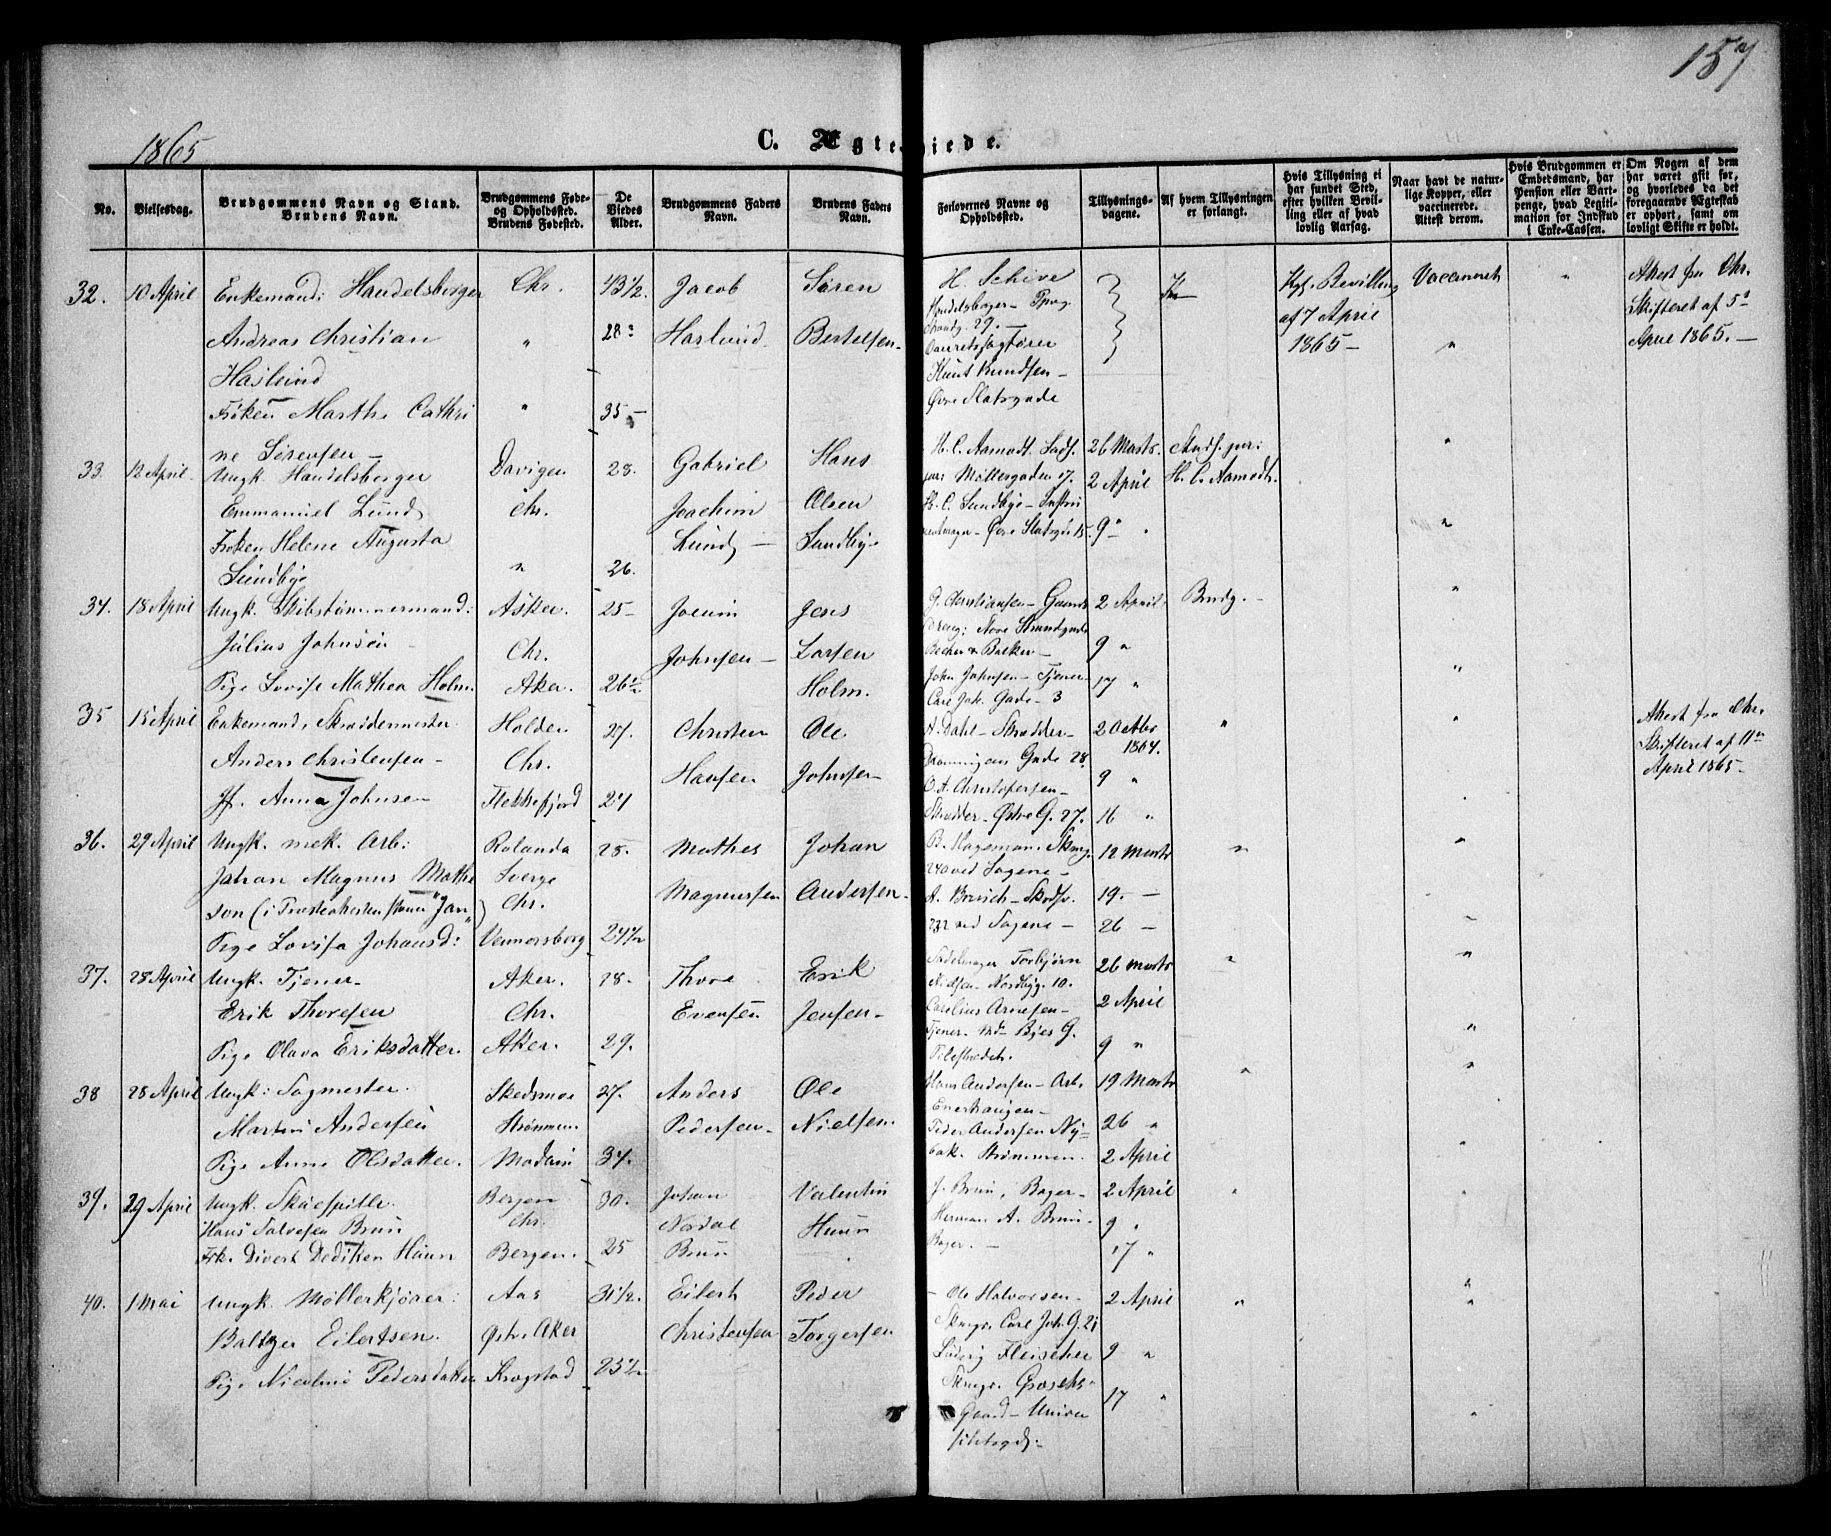 157
1865
C. Ægteviede.
No.
Vielsesdag.
Brudgommens Navn og Stand.
Brudens Navn.
Brudgommens Føde-
og Opholdssted.
Brudens Fødested.
De
Viedes
Alder.
Brudgommens Faders
Navn.
Brudens Faders
Navn.
Forlovernes Navne og
Opholdssted.
Tillysnings-
dagene.
Af hvem Tillysningen
er forlangt.
Hvis Tillysning ei
har fundet Sted,
efter hvilken Bevil-
ling eller af hvad
lovlig Aarsag.
Naar havt de natur-
lige Kopper, eller
vaccinerede.
Attest derom.
Hvis Brudgommen er
Embedsmand, har
Pension eller Vart-
penge, hvad Legiti-
mation for Indskud
i Enke-Cassen.
Om Nogen af dem
har været gift før,
og hvorledes da det
foregaaende Ægteskab
er ophørt, samt om
lovligt Skifte er holdt.
32. 10 April Enkemand: Handelsborger Chr. 43½. Jacob Søren H. Schive Kgl. Bevilling Vaccineret " Attest fra Chr.
Handelsborger
Skifteret af 5te
Andreas Christian " 28: Haslund Bertelsen. af 7 April
1865 — " April 1865. —
Haslund Knut Knudsen —
Frøken Marthe Cathri " 35 — Øvre Slotsgade
ne Sørensen —
33 12 April Ungk. Handelsborger 28. Gabriel Hans H. C. Aamodt 26 Marts "
Møllergaden 17. 2 April H. C. Aamodt.
Emmanuel Lund Chr. Joachim Olsen H. C. Sundbye — Instru
Frøken Helene Augusta Lund — Sundbye mentmager — Øvre Slotsgde 15. 9 " "
Sundbye " 26.
34. 18 April Ungk. Skibstømmermand: Asker. 25 — Jocum Jens G. Christiansen — Gaards 2 April. Brudg. — "
dreng; Store Strandgade
Julius Johnsen — Chr. Johnsen — Larsen 9 "
Pige Lovise Mathea Holm. Aker. 26½ Holm. John Johnsen — Tjener 17 " "
Carl Joh. Gade — 3
35 15 April Enkemand, Skræddermester Holden 27. Christen Ole A. Dahl — Skrædder — 2 Octbr " " Attest fra Chr.
1864.
Skifteret af 11te
Anders Christensen — Chr. Hansen Johnsen — Dronningens Gade 28. 9 " April 1865 —
O. A. Christophersen —
Jf. Anna Johnsen Flekkefjord 24 Skrædder — Østre G. 27. 16 "
36. 29 April Ungk. mek. Arb: 28. Mathes Johan B. Hageman. 12 Marts " "
Johan Magnus Mathe Sverge Magnussen Andersen. 240 ved Sagene —
son Chr. 19. —
232 ved Sagene — 26 —
Pige Lovisa Johansd: Vennersborg 24½
37. 28 April Ungk. Tjener — Aker. 28. Thore Erik Sadelmager Torbjørn 26 Marts " "
Nielsen — 10.
Erik Thoresen Chr. Evensen Jensen — Carolius Arnesen — 2 April
Tjener. G. "
Pige Olava Eriksdatter. Aker. 29. 9 " "
38 28 April Ungk: Sagmester. Skedsmoe 27. Anders Ole Hans Andersen — Arb. 19 Marts " "
Enerhaugen —
Martin Andersen Strømmen Pedersen — Nielsen. Peder Andersen 26 "
Pige Anne Olsdatter. 34. Strømmen. 2 April "
39. 29 April Ungk. Skuespiller. Bergen 30. Johan Valentin J. Brun, Bager — 2 April " "
Hans Talvesen Brun Chr. Nordal Huun Herman A. Brun 9 "
Frk. Divert Dediken Huun Bergen. 25 Brun Bager. — 17 "
40. 1 Mai Ungk. Møllerkjører: Aas 31½. Eilert Peder Ole Halvorsen — 2 April " "
Carl Joh. G. 21
Baltzer Eilertsen. Østr. Aker Christensen Torgersen Ludvig Fleischer 9 "
Pige Nicoline Pedersdatter Krogstad 23½ 17 "
Gaard — Univer
sitetsgd: —